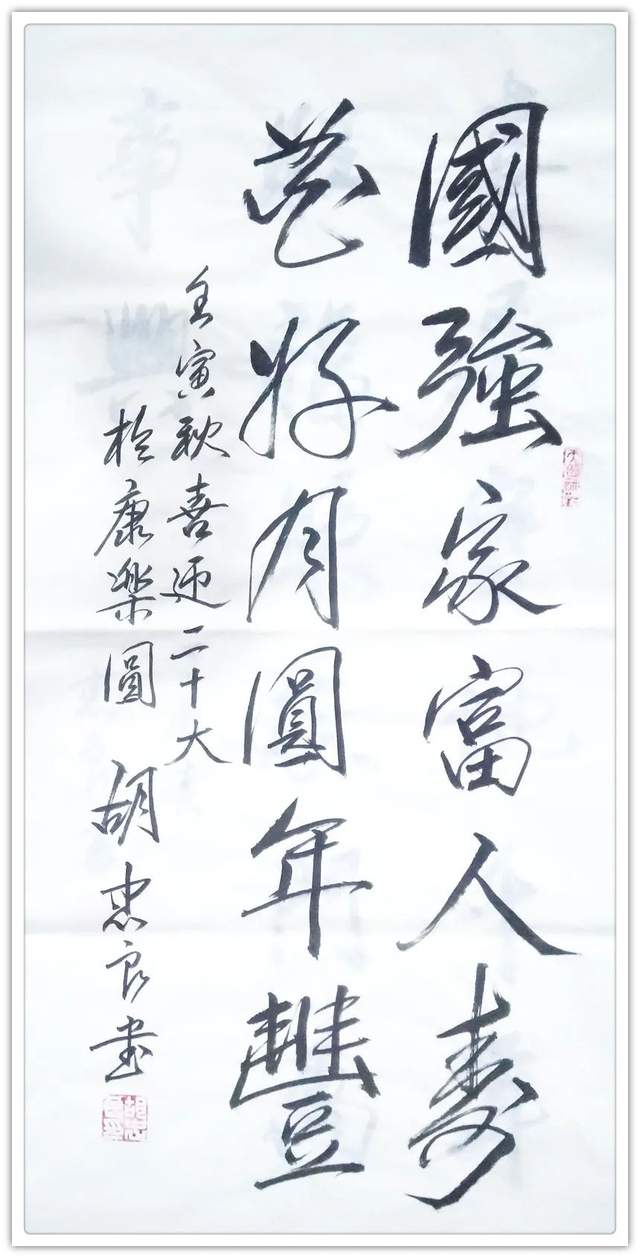 國強家富人壽
花好月圓年豐
壬寅秋喜迎二十大
於康樂園 胡忠良書